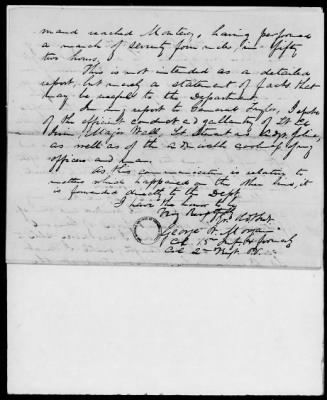 mand reached Monterey, having performed
a march of seventy four miles in fifty
two hours.
This is not intended as a detailed
report, but merely a statement of facts that
may be useful to the Department.
In my report to General Taylor, I spoke
of the efficient conduct and gallantry of Lt Col
Irvin, Major Wall, Lt Stewart as Adjt
as well as of the admirable conduct of my
officers and men.
As this communication is relating to
matters which happened on the other line, it
is forwarded directly to the Dept.
I have the honor to be
Very Respt
Yr. Obt Svt
George W. Morgan
Col 15 Inf
Col 2 Regt